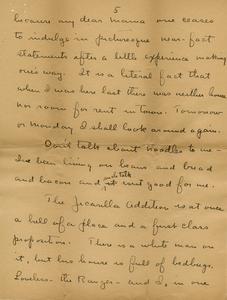 5
because my dear Mama one ceases
to indulge in picturesque near-fact
statements after a little experience making
one's way. It is a literal fact that
when I was here last there was neither home
nor room for rent in town. Tomorrow
or Monday I shall look around again.
Don't talk about noodles to me -
I've been living on beans and bread
and bacon and such talk isn't good for me.
The Jicarilla Addition is at once
a hell of a place and a first class
proposition. There is a white man on
it, but his house is full of bedbugs,
Loveless - the Ranger - and I, in one